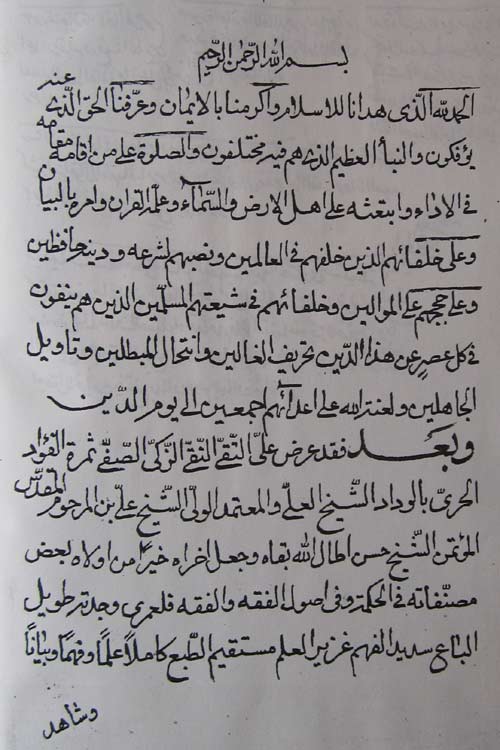 بسم الله الرحمن الرحيم
الحمد لله الذى هدانا للاسلام واكرمنا بالايمان وعرفنا الحق الذى عنه
يؤفكون والنبأ العظيم الذى هم فيه مختلفون والصلوة على من اقامه مقامه
فى الاداء وابتعثه على اهل الارض والسماء وعلمه القران وامره بالبيان
وعلى خلفائهم الذين خلفهم فى العالمين ونصبهم لشرعه ودينه حافظين
وعلى حججهم على الموالين وخلفائهم فى شيعتهم المسلمين الذين هم ينفون
فى كل عصر عن هذا الدين تحريف الغالين وانتحال المبطلين وتاويل
الجاهلين ولعنة الله على اعدائهم اجمعين الى يوم الدين
وبعد فقد عرض علىّ التقى النقى الزكى الصفى ثمرة الفؤاد
الحرىّ بالوداد الشيخ العلى والمعتمد الولى الشيخ على بن المرحوم المقدس
المؤتمن الشيخ حسن اطال الله بقاه وجعل اخراه خيرا من اولاه بعض
مصنفاته فى الحكمة وفى اصول الفقه والفقه فلعمرى وجدته طويل
الباع سديد الفهم غزير العلم مستقيم الطبع كاملاً علماً وفهماً وبياناً
وشاهد